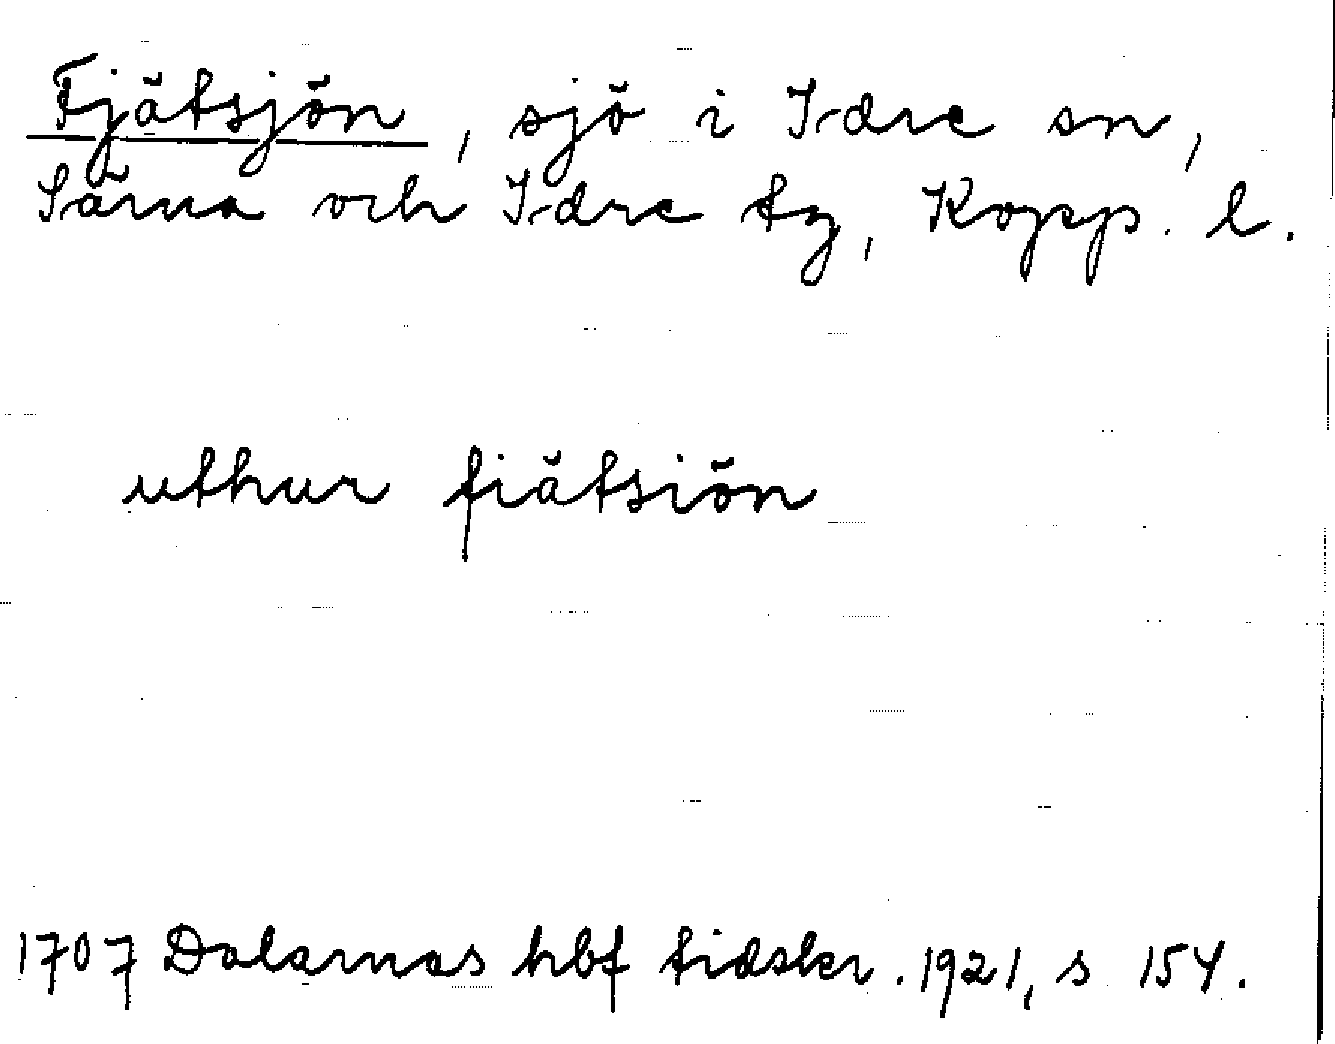 Fjätsjön, sjö i Idre sn,
Särna och Idre tg, Kopp. l.
uthur fiätsiön
1707 Dalarnas hbf tidskr. 1921, s 154.